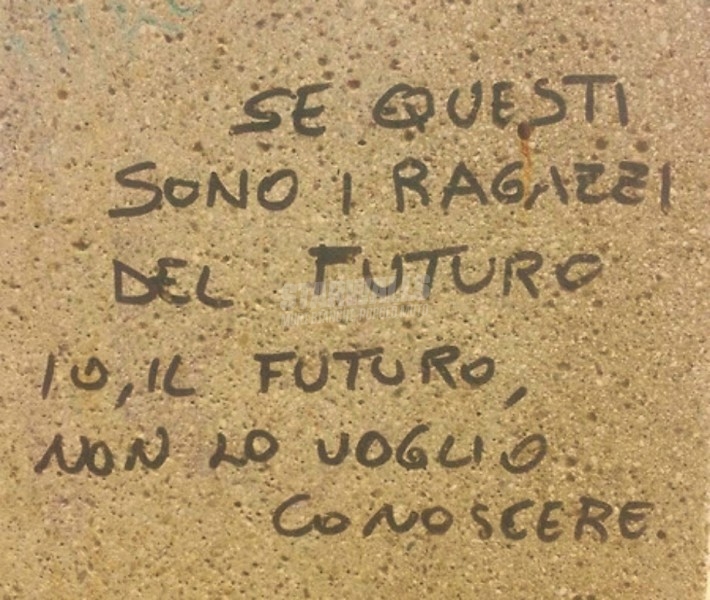 SE QUESTI
SONO I RAGAZZI
DEL FUTURO
IO, IL FUTURO,
NON LO VOGLIO
CONOSCERE.